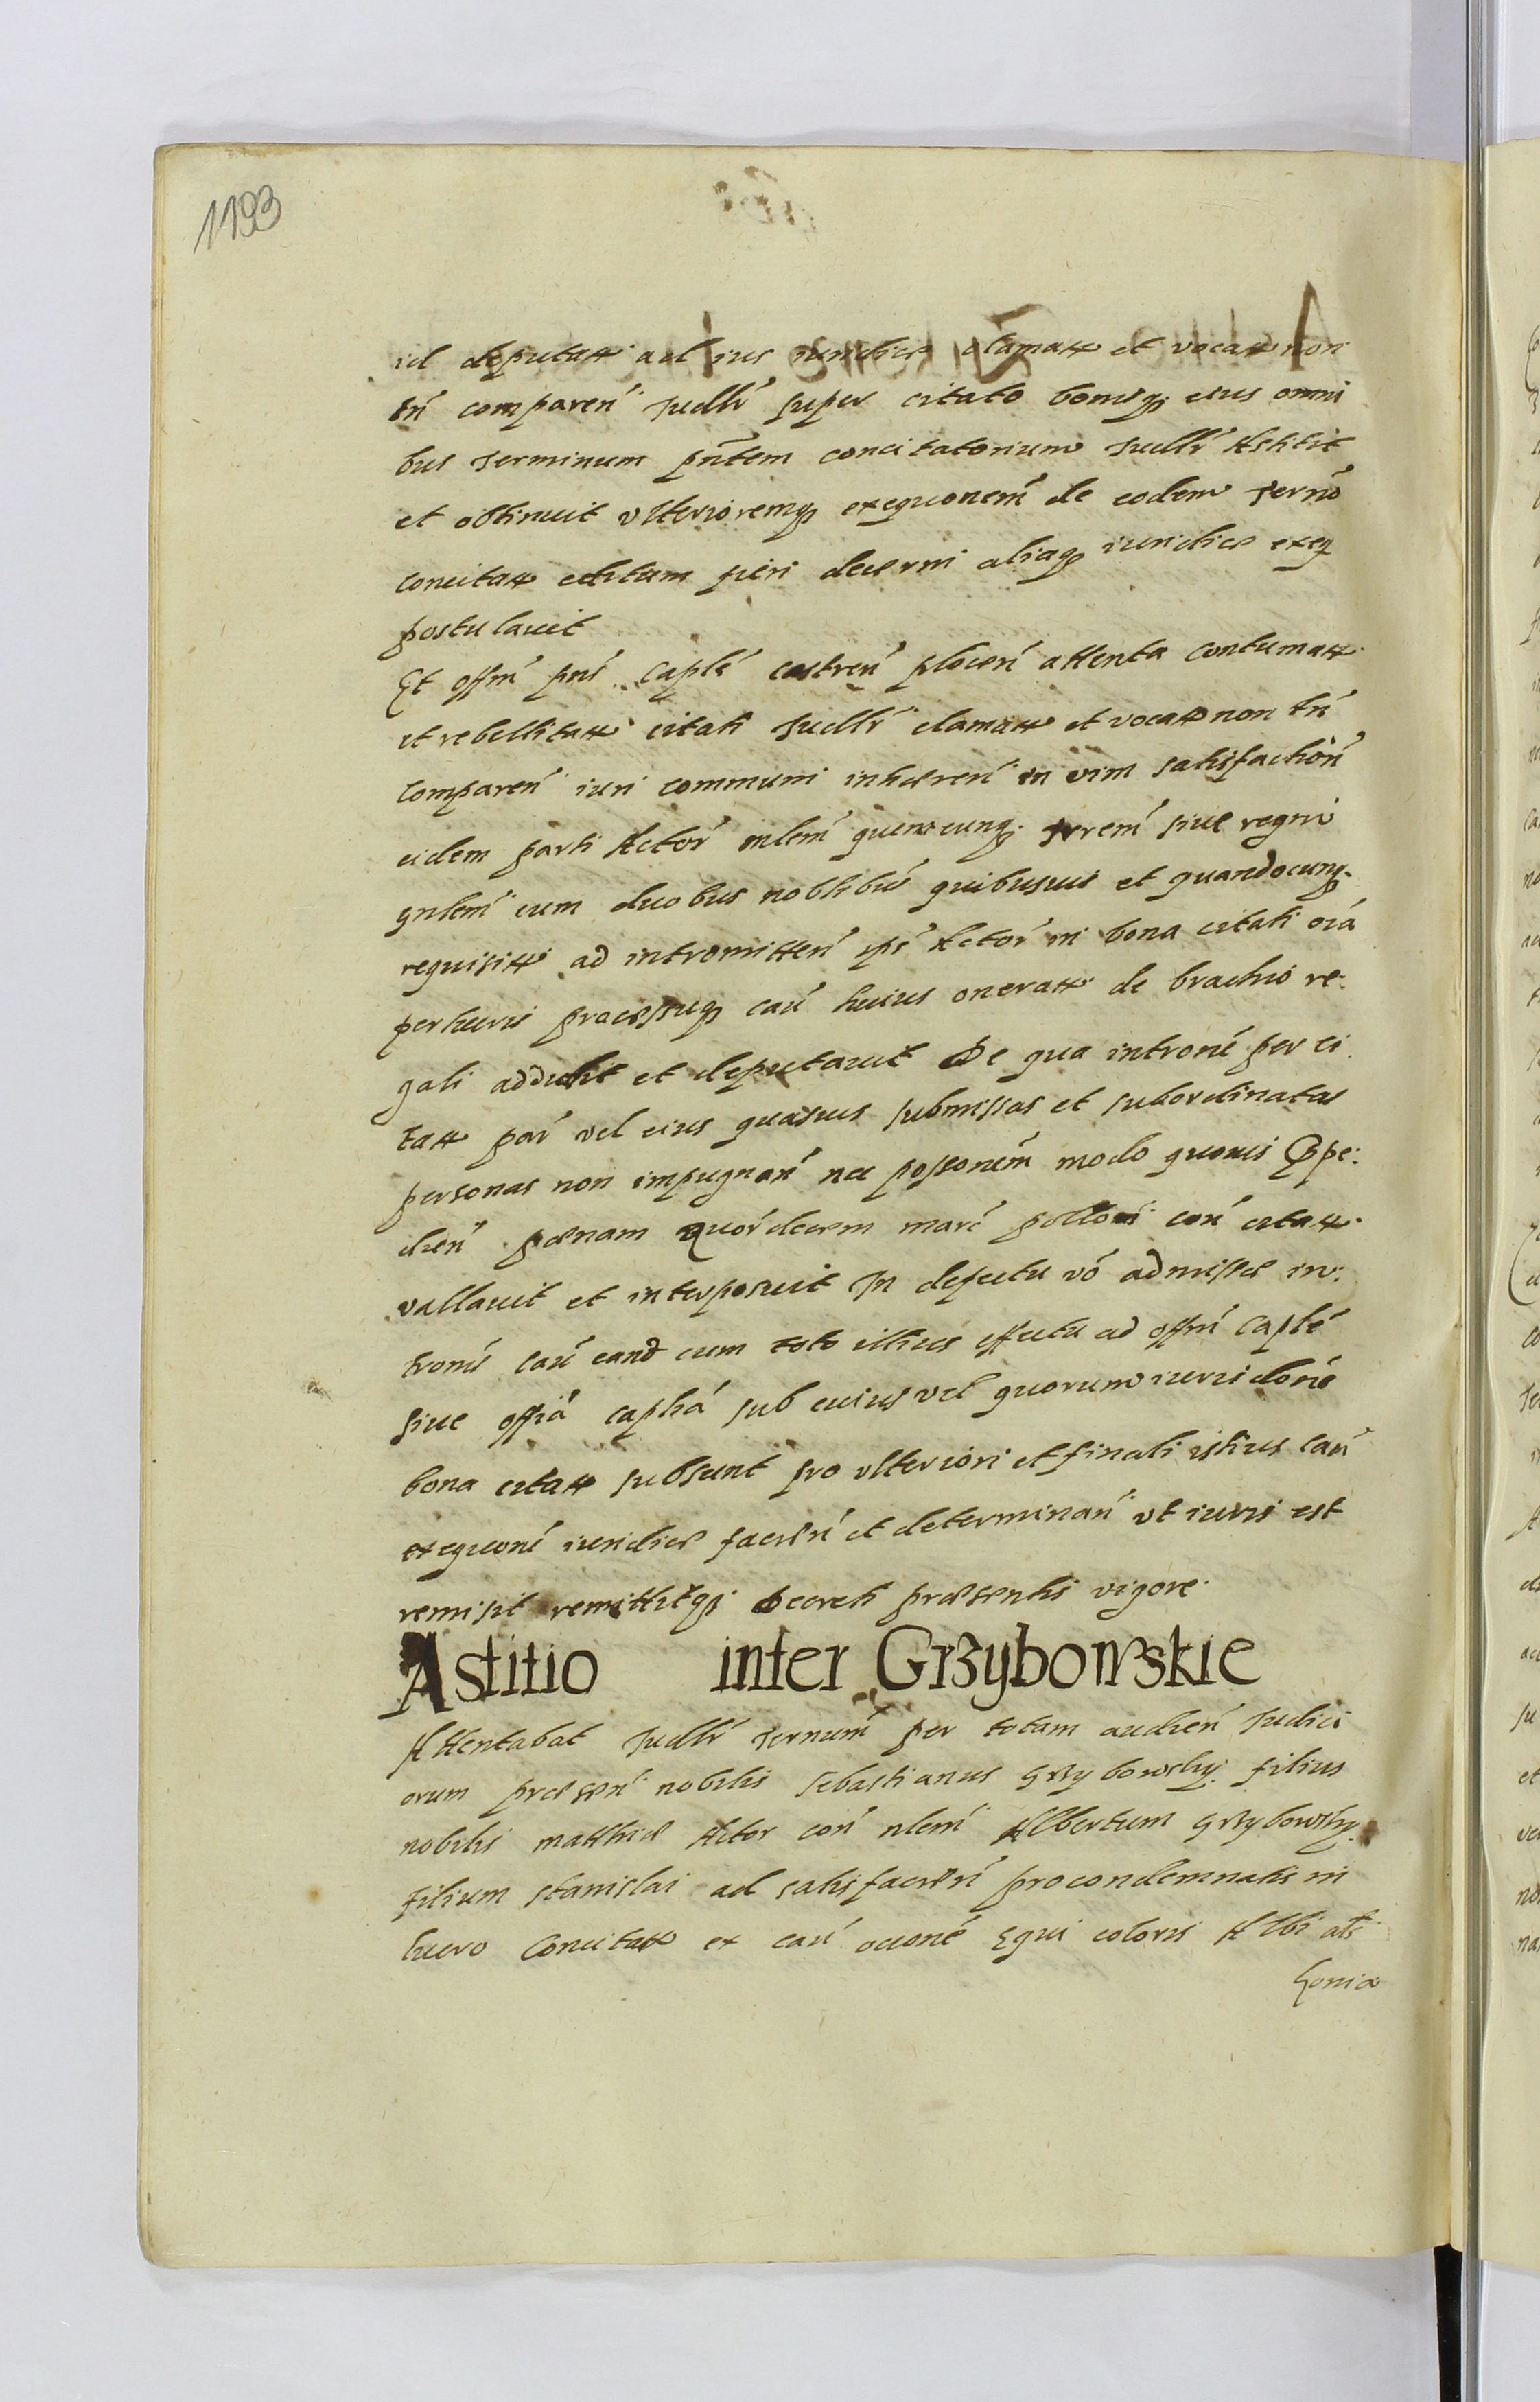 1193
id deputatt ad ius iuridice clamatt et vocatt non
tń comparen Judlr super citato bonisq eius omni
bus Terminum pñtem concitatorium Judlr Astitit
et obtinuit vlterioremq exequonem de eodem Terno
concitatt editum fieri decerni aliaq iuridice exeq
postulavit
Et offm pns Caplē castren plocen attenta contumatt
et rebellitatt citati Judlr clamatt et vocatt non tń
comparen iuri communi inhæren in vim satisfaction
eidem parti Actor mlem quemcunq Terrem sive regni
gnlem cum duobus noblibus quibusvis et quandocunq
requisitt ad intromitten ipm Actor in bona citati oia
perlucris processuq cau huius oneratt de brachio re:
gali addidit et deputavit De qua introne per ci
tatt par vel eius quasvis submissas et subordinatas
personas non impugnan nec possonem modo quovis Impe:
dien pænam Quordecem marc pollon con citatt
vallavit et interposuit In defectu vo admissæ in:
tronis cau eand cum toto illius effectu ad offm Caplē
sive offia caplia sub cuius vel quorum iurisdone
bona citatt subsunt pro vlteriori et finali istius cau
exequone iuridice facien et determinan vt iuris est
remisit remittitq Decreti præsentis vigore
Astitio inter Grzybowskie
Attentabat Judlr Ternum per totam audien Judici
orum præsen nobilis Sebastianus Grzybowsky filius
nobilis Matthiæ Actor con nlem Albertum Grzybowsky
filium Stanislai ad satisfacien procondemnatis in
lucro Concitatt ex cau ocione Equi coloris Albi als
Konia